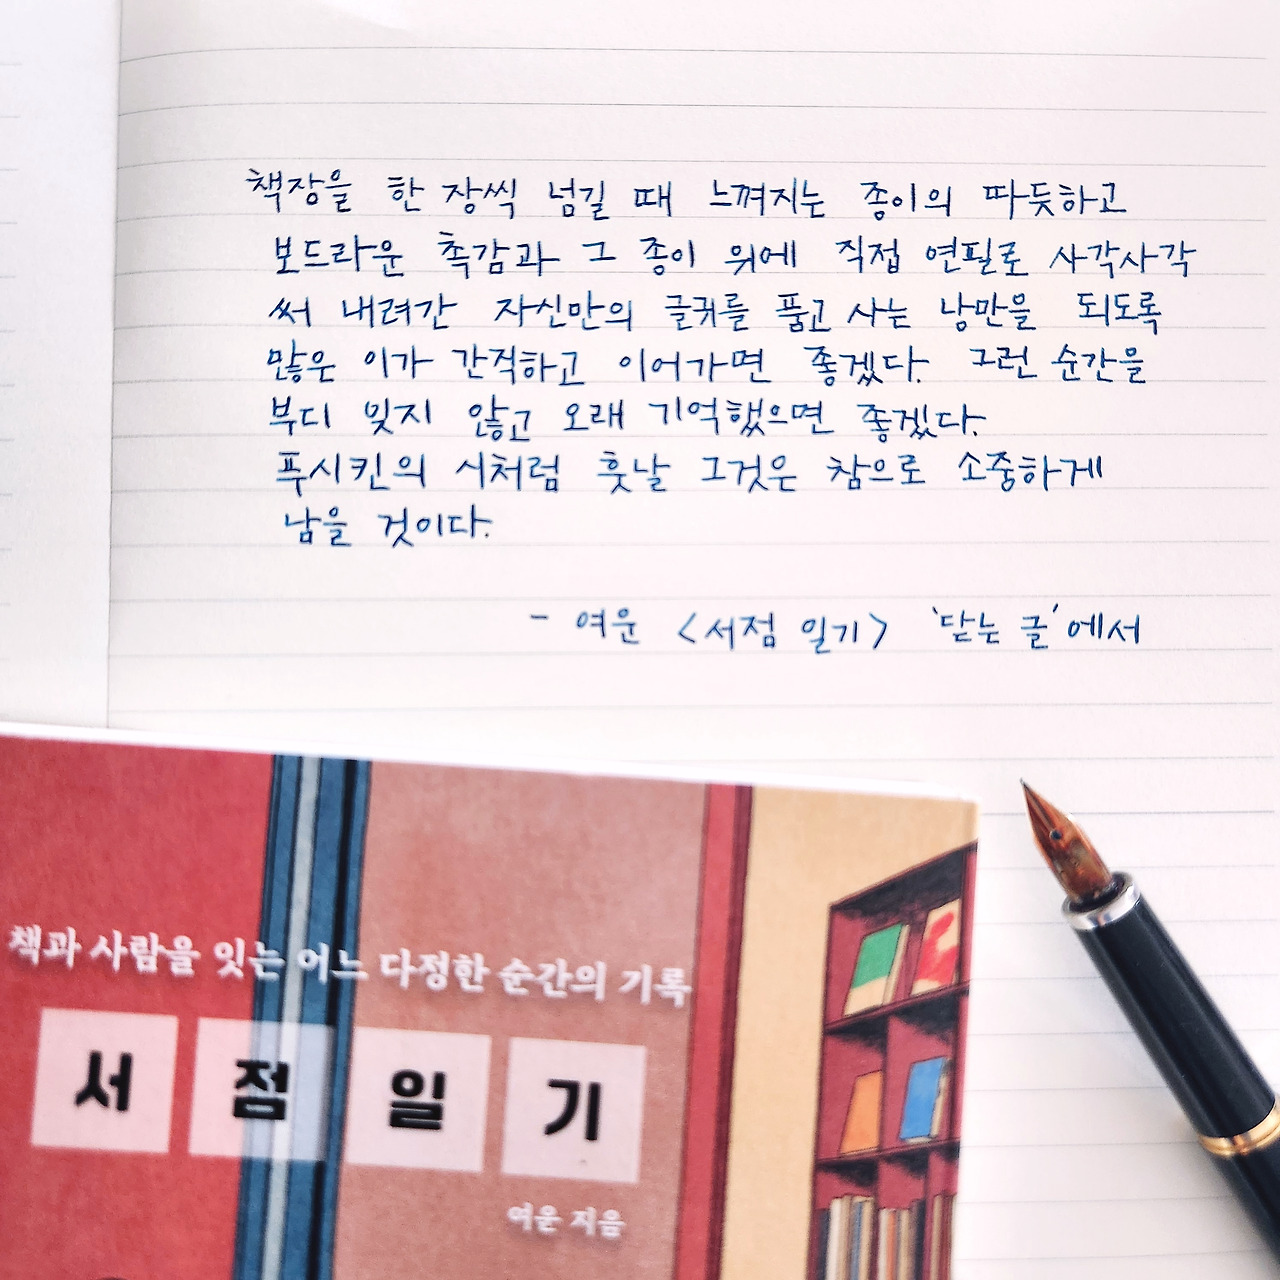 책장을 한 장씩 넘길 때 느껴지는 종이의 따듯하고
보드라운 촉감과 그 종이 위에 직접 연필로 사각사각
써 내려간 자신만의 글귀를 품고 사는 낭만을 되도록
많은 이가 간직하고 이어가면 좋겠다. 그런 순간을
부디 잊지 않고 오래 기억했으면 좋겠다.
푸시킨의 시처럼 훗날 그것은 참으로 소중하게
남을 것이다.
- 여운 <서점 일기> '닫는 글'에서
책과 사람을 잇는 어느 다정한 순간의 기록
서점일기
여운 지음